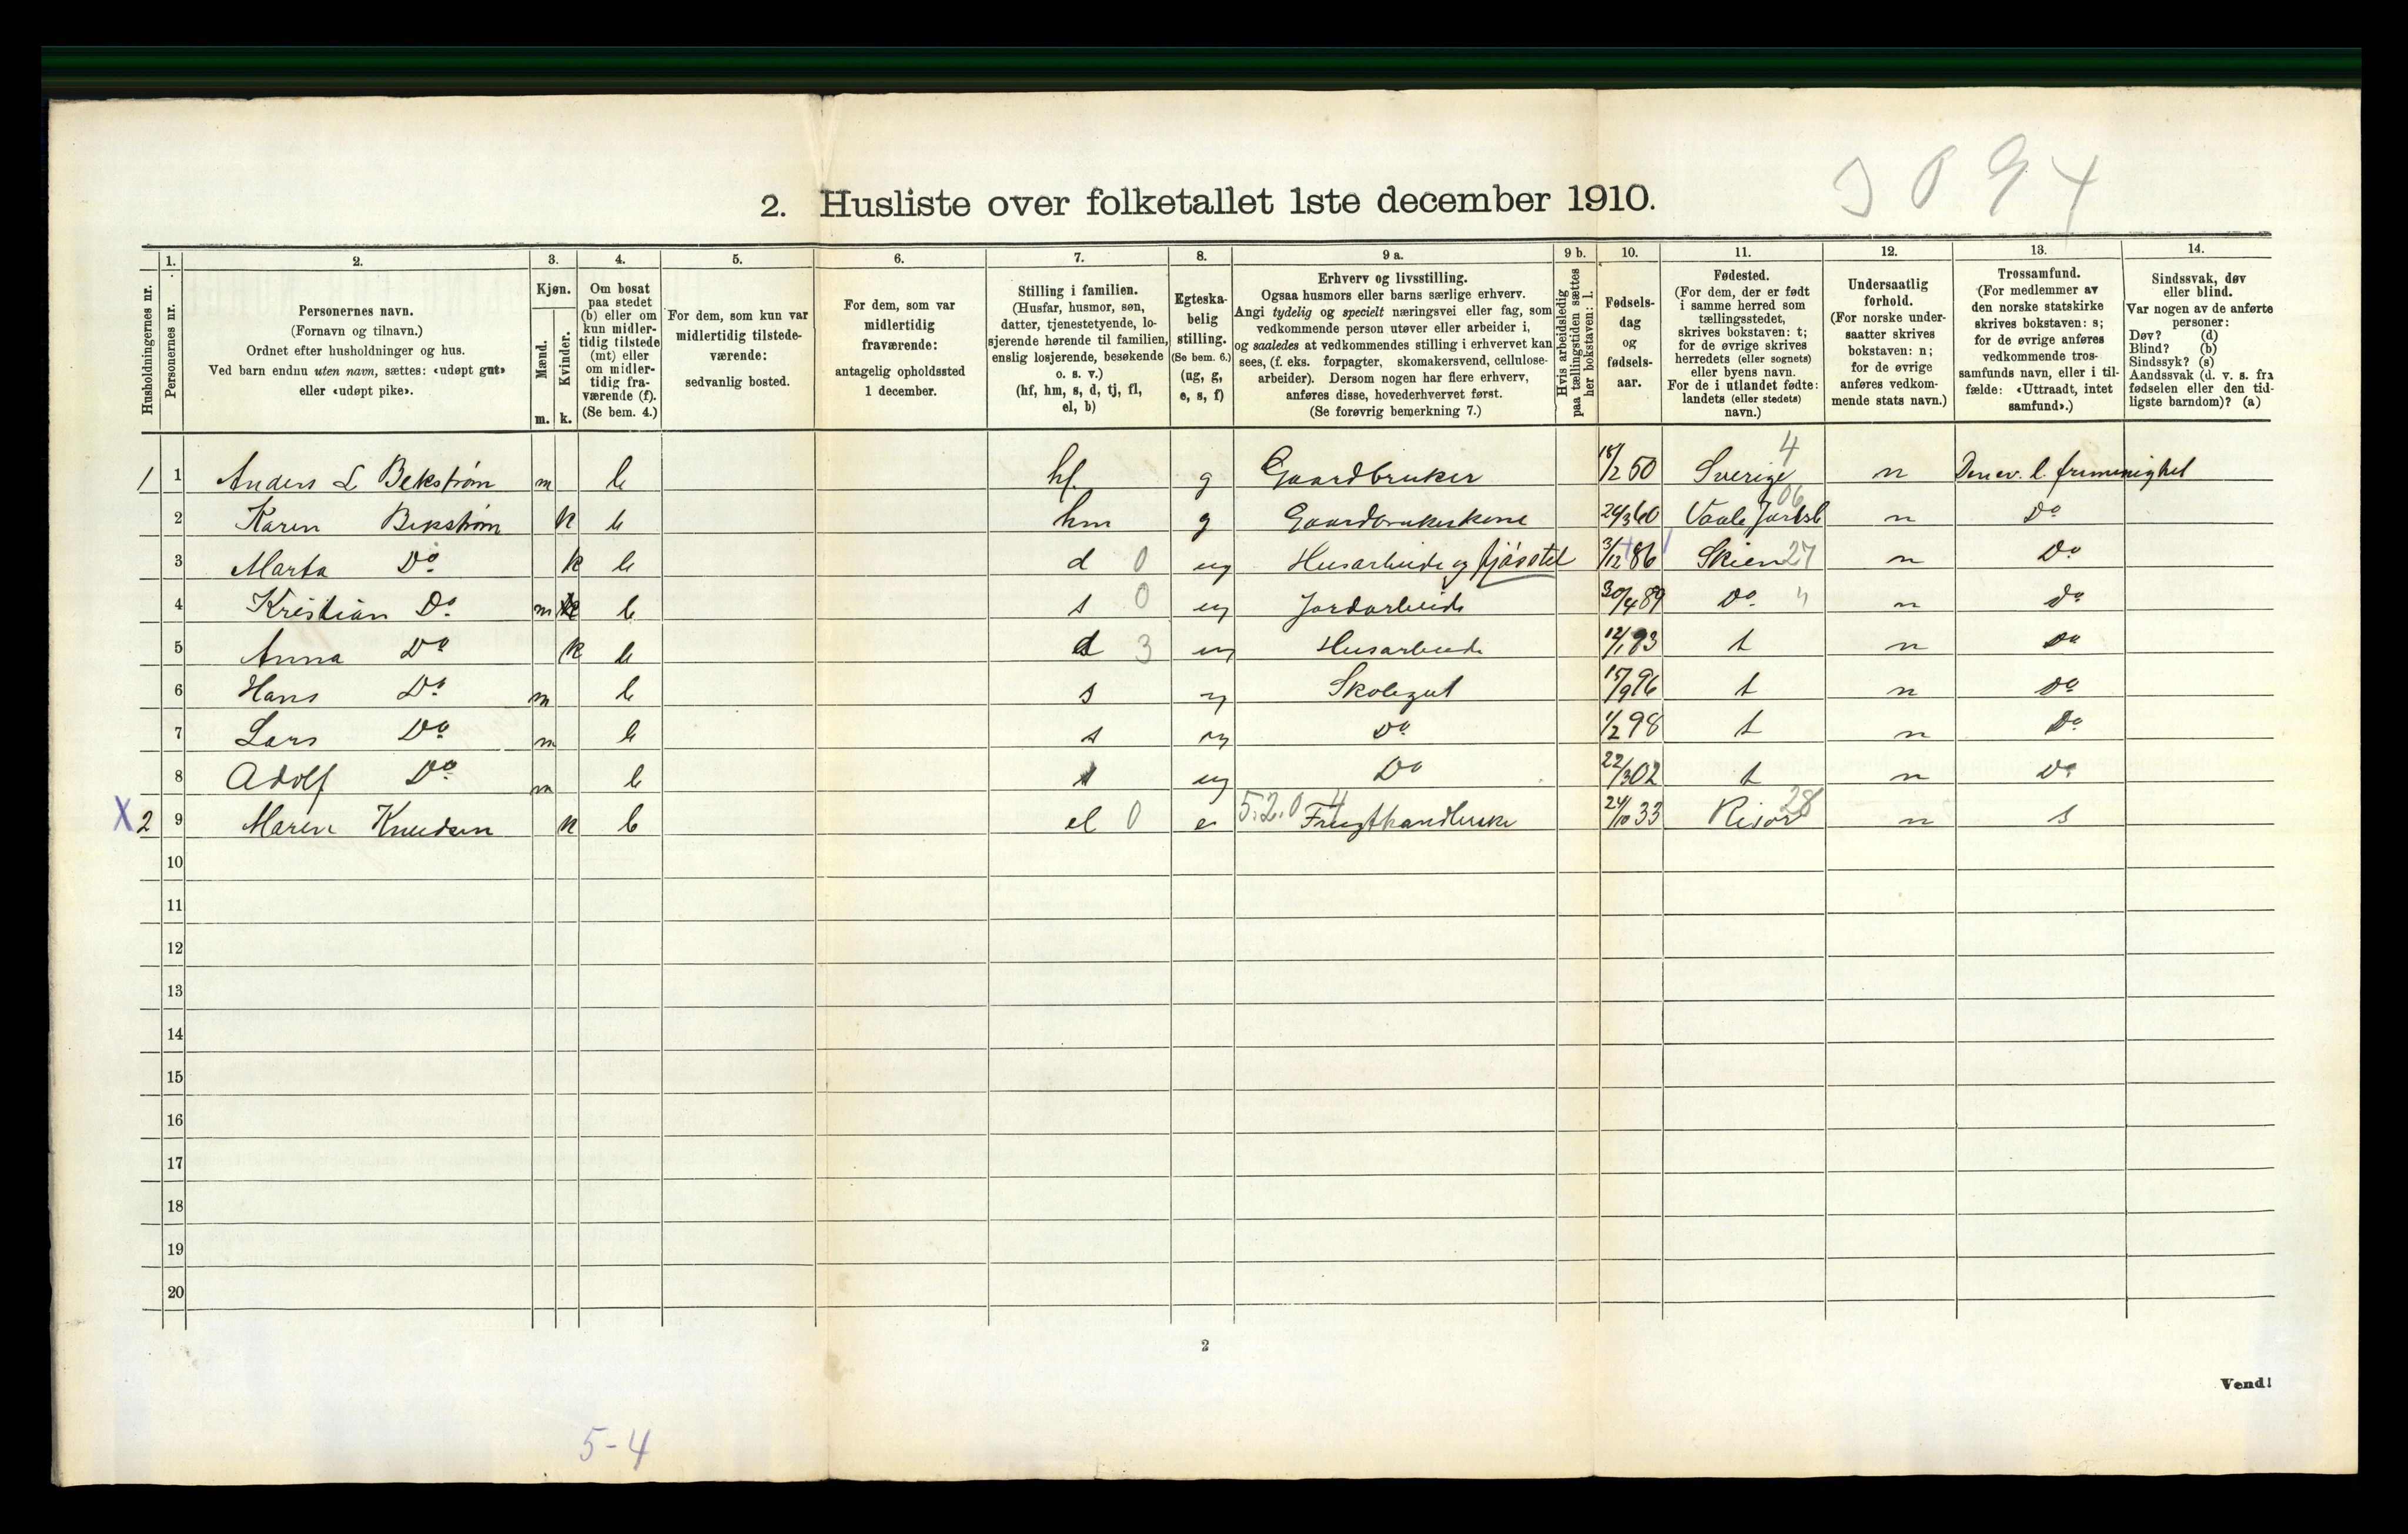 3094
2. Husliste over folketallet 1ste december 1910.
Husholdningernes nr.
1.
Personernes nr.
2.
Personernes navn.
(Fornavn og tilnavn.)
Ordnet efter husholdninger og hus.
Ved barn endnu uten navn, sættes: «udøpt gut»
eller «udøpt pike».
3.
Kjøn.
Mænd.
Kvinder.
m. k.
4.
Om bosat
paa stedet
(b) eller om
kun midler-
tidig tilstede
(mt) eller
om midler-
tidig fra-
værende (f).
(Se bem. 4.)
5.
For dem, som kun var
midlertidig tilstede-
værende:
sedvanlig bosted.
6.
For dem, som var
midlertidig
fraværende:
antagelig opholdssted
1 december.
7.
Stilling i familien.
(Husfar, husmor, søn,
datter, tjenestetyende, lo-
sjerende hørende til familien,
enslig losjerende, besøkende
o. s. v.)
(hf, hm, s, d, tj, fl,
el, b)
8.
Egteska-
belig
stilling.
(Se bem. 6.)
(ug, g,
e, s, f)
9 a.
Erhverv og livsstilling.
Ogsaa husmors eller barns særlige erhverv.
Angi tydelig og specielt næringsvei eller fag, som
vedkommende person utøver eller arbeider i,
og saaledes at vedkommendes stilling i erhvervet kan
sees, (f. eks. forpagter, skomakersvend, cellulose-
arbeider). Dersom nogen har flere erhverv,
anføres disse, hovederhvervet først.
(Se forøvrig bemerkning 7.)
9 b.
Hvis arbeidsledig
paa tællingstiden sættes
her bokstaven: l.
10.
Fødsels-
dag
og
fødsels-
aar.
11.
Fødested.
(For dem, der er født
i samme herred som
tællingsstedet,
skrives bokstaven: t;
for de øvrige skrives
herredets (eller sognets)
eller byens navn.
For de i utlandet fødte:
landets (eller stedets)
navn.)
12.
Undersaatlig
forhold.
(For norske under-
saatter skrives
bokstaven: n;
for de øvrige
anføres vedkom-
mende stats navn.)
13.
Trossamfund.
(For medlemmer av
den norske statskirke
skrives bokstaven: s;
for de øvrige anføres
vedkommende tros-
samfunds navn, eller i til-
fælde: «Uttraadt, intet
samfund».)
14.
Sindssvak, døv
eller blind.
Var nogen av de anførte
personer:
Døv? (d)
Blind? (b)
Sindssyk? (s)
Aandssvak (d. v. s. fra
fødselen eller den tid-
ligste barndom)? (a)
1 1 Anders L Bekstrøm m b hf. g Gaardbruker 18/2 50 Sverige 4 n Den ev. l. frimenighet
2 Karen Bekstrøm k b hm g Gaardbrukerkone 24/3 60 Vaale Jarlsb 06 n Do
3 Marta Do k b d 0 ug Husarbeide og fjøsstel 3/12 86 Skien 27 n Do
4 Kristian Do m b s 0 ug Jordarbeide 30/4 89 Do " n Do
5 Anna Do k b d 3 ug Husarbeide 12/1 93 t n Do
6 Hans Do m b s ug Skolegut 15/9 96 t n Do
7 Lars Do m b s ug Do 1/2 98 t n Do
8 Adolf Do m b s ug Do 22/3 02 t n Do
X 2 9 Maren Knudsen k b el 0 e 5.2.0 4 Frugthandlerske 24/10 33 Risør 28 n s
10
11
12
13
14
15
16
17
18
19
20
2
Vend!
5-4